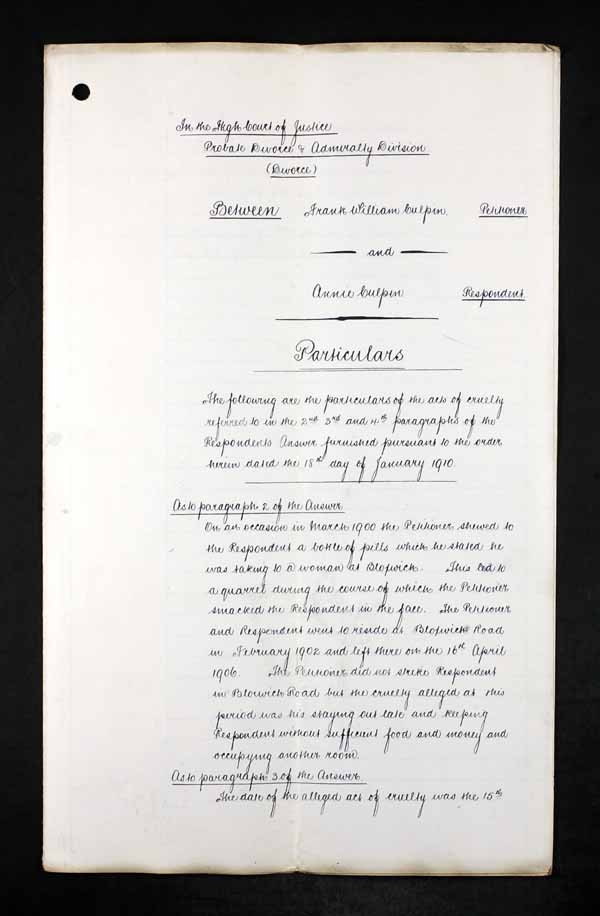 In the High Court of Justice
Probate Divorce & Admiralty Division
(Divorce)
Between Frank William Culpin. Petitioner
and
Annie Culpin Respondent.
Particulars
The following are the particulars of the acts of cruelty
referred to in the 2nd 3rd and 4th paragraphs of the
Respondents Answer furnished pursuant to the order
herein dated the 18th day of January 1910.
As to paragraph 2 of the Answer.
On an occasion in March 1900 the Petitioner shewed to
the Respondent a bottle of pills which he stated he
was taking to a woman at Bloxwich. This led to
a quarrel during the course of which the Petitioner
smacked the Respondent in the face. The Petitioner
and Respondent went to reside at Bloxwich Road
in February 1902 and left there on the 16th April
1906. The Petitioner did not strike Respondent
in Bloxwich Road but the cruelty alleged at this
period was his staying out late and keeping
Respondent without sufficient food and money and
occupying another room.
As to paragraph 3 of the Answer.
The date of the alleged act of cruelty was the 15th